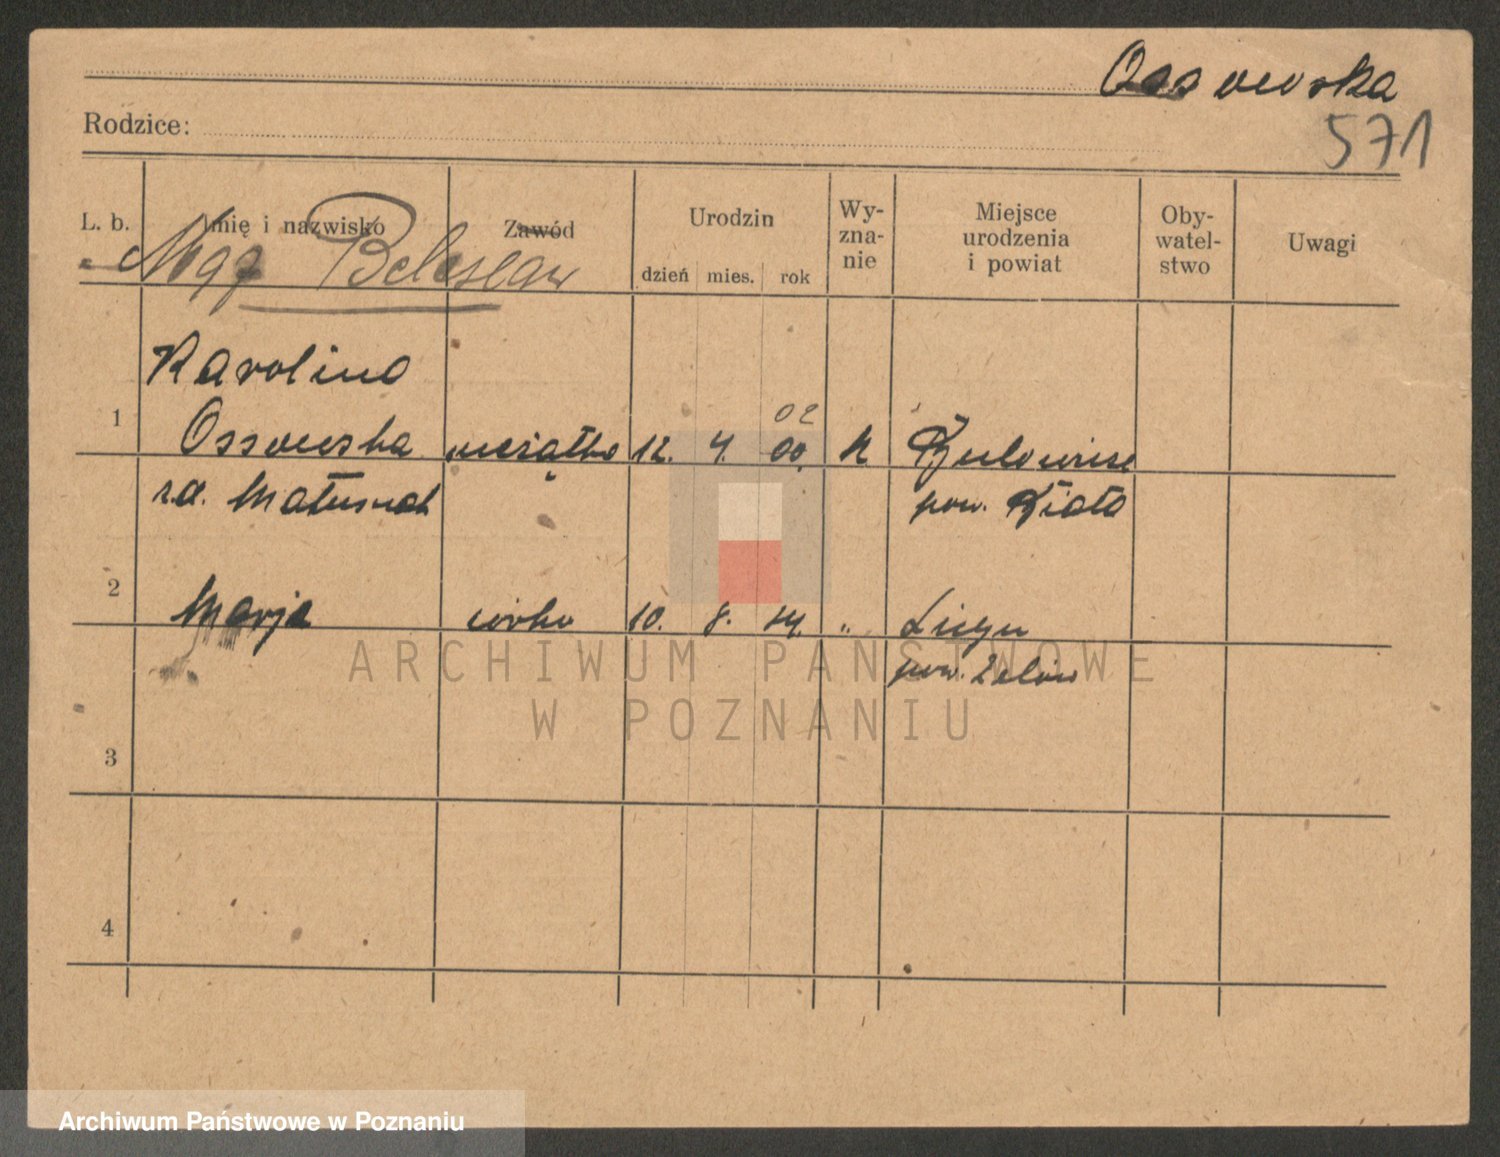 Ossowska
571
Rodzice:
L. b. Imię i nazwisko Zawód Urodzin dzień mies. rok Wy-zna-nie Miejsce urodzenia i powiat Oby-watel-stwo Uwagi
Mąż Bolesław
Karolina
02
1 Ossowska mężatka 12. 4. 00. K
r.d. Matusiak pow. Biała
2 Marja córka 10. 8. 24. "
pow.
ARCHIWUM PAŃSTWOWE
W POZNANIU
3
4
Archiwum Państwowe w Poznaniu